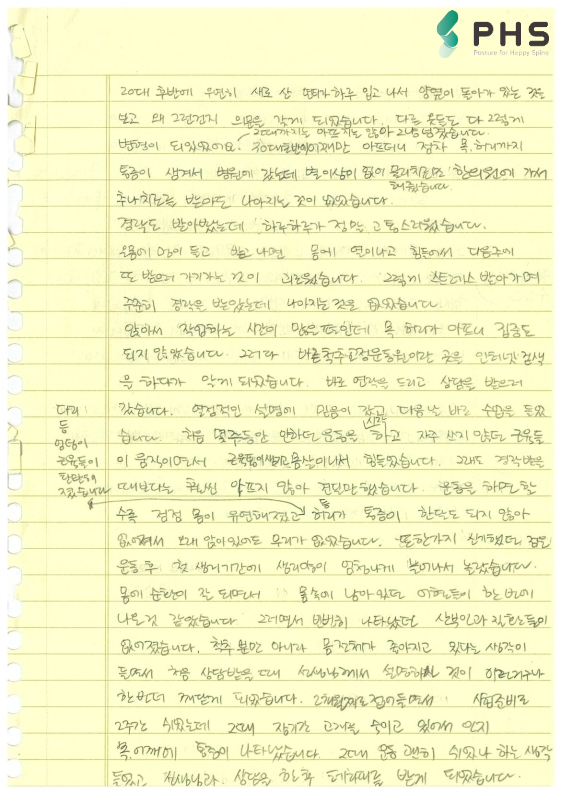 PHS
Posture for Happy Spine
20대 후반에 우연히 새로 산 바지가 하루 입고 나서 양옆이 돌아가 있는 것을
보고 왜 그런건지 의문을 갖게 되었습니다. 다른 옷들도 다 그렇게
20대까지는 아프지는 않아 그냥 넘겼습니다.
변형이 되있었어요. 어깨만 아프더니 점차 목, 허리까지
통증이 생겨서 병원에 갔는데 별 이상이 없어 물리치료와 한의원에 가서
추나치료를 받아도 나아지는 것이 없었습니다.
경락도 받아봤는데 하루하루가 정말 고통스러웠습니다.
온몸에 멍이 들고 받고 나면 몸에 열이 나고 힘들어서 다음주에
또 받으러 가기가는 것이 괴로웠습니다. 그렇게 스트레스 받아가며
꾸준히 경락을 받았는데 나아지는 것은 없었습니다.
앉아서 작업하는 시간이 많은 편인데 목 허리가 아프니 집중도
되지 않았습니다. 그러다 바른척추교정운동원이란 곳을 인터넷 검색
을 하다가 알게 되었습니다. 바로 연락을 드리고 상담을 받으러
갔습니다. 열정적인 설명에 믿음이 갔고 다음날 바로 수업을 들었
습니다. 처음 몇주동안 안하던 운동을 시작하고 자주 쓰지 않던 근육들
이 움직이면서 근육통이 생기고 몸살이 나서 힘들었습니다. 그래도 경락받을
때보다는 훨씬 아프지 않아 견딜만 했습니다. 운동을 하면 할
다리
등
엉덩이
근육들이
탄탄해
졌습니다
수록 점점 몸이 유연해졌고 허리가 통증이 한달도 되지 않아
없어져서 오래 앉아있어도 무리가 없었습니다. 또한가지 신기했던 점은
운동 후 첫 생리기간에 생리양이 엄청나게 늘어나서 놀랐습니다.
몸에 순환이 잘 되면서 몸속에 남아있던 어혈들이 한번에
나온 것 같았습니다. 그러면서 빈번히 나타났던 질환들이
없어졌습니다. 척추 뿐만 아니라 몸 전체가 좋아지고 있다는 생각이
들면서 처음 상담받을 때 선생님께서 설명하신 것이 이런거구나
한번 더 깨닫게 되었습니다. 2개월째로 접어들면서 사업준비로
2주간 쉬었는데 그때 장기간 고개를 숙이고 있어서 인지
목, 어깨에 통증이 나타났습니다. 그때 운동 괜히 쉬었나 하는 생각
들었고 선생님과 상담을 한 후 테라피를 받게 되었습니다.